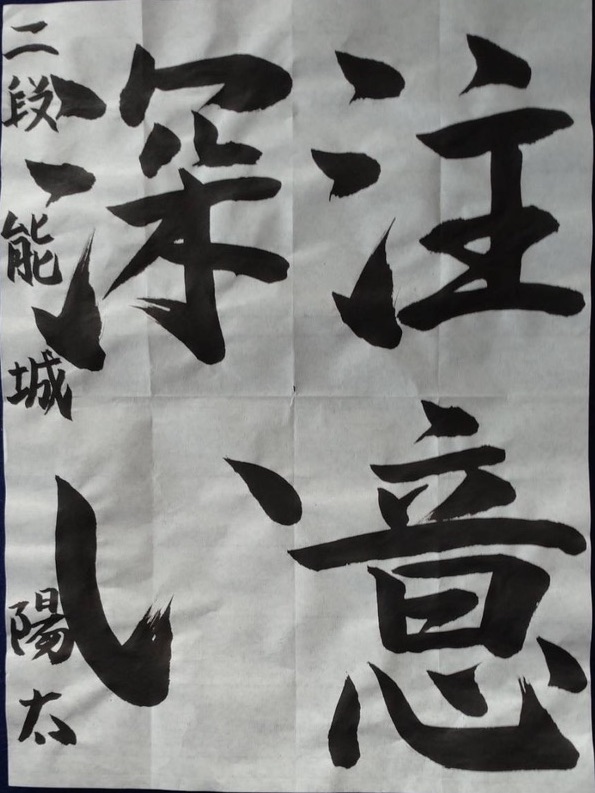 注意
深い
二段 能城 陽太